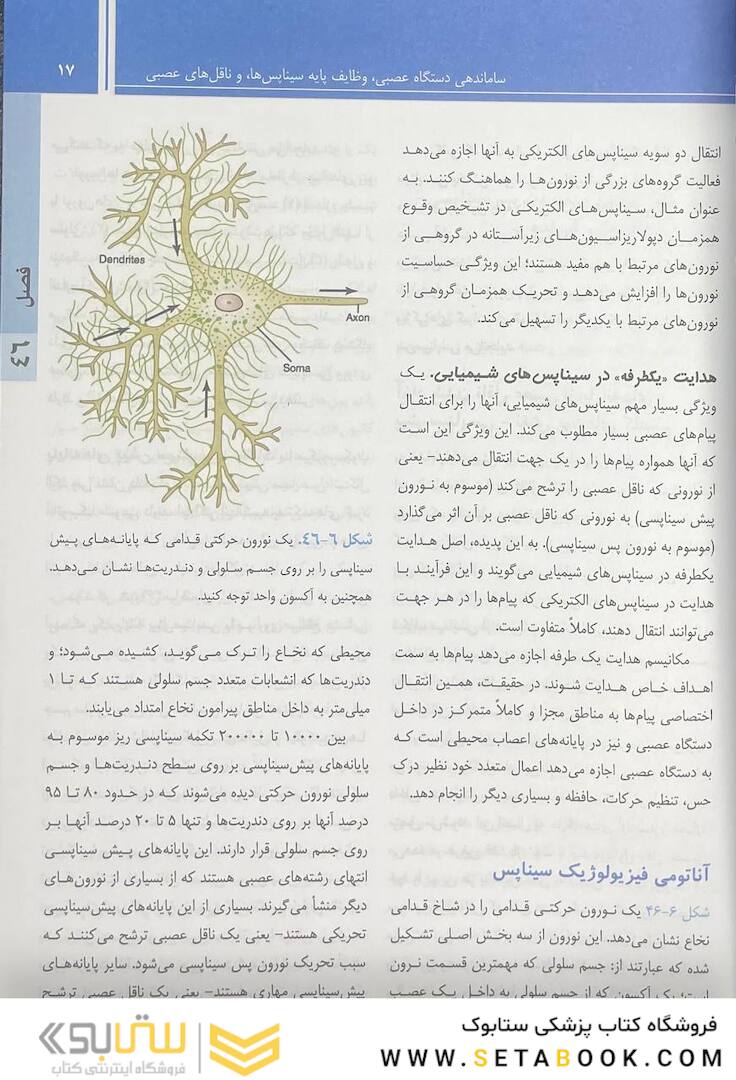 ساماندهی دستگاه عصبی، وظایف پایه سیناپس‌ها، و ناقل‌های عصبی
۱۷
فصل
۴۶
انتقال دو سویه سیناپس‌های الکتریکی به آنها اجازه می‌دهد
فعالیت گروه‌های بزرگی از نورون‌ها را هماهنگ کنند. به
عنوان مثال، سیناپس‌های الکتریکی در تشخیص وقوع
همزمان دپولاریزاسیون‌های زیرآستانه در گروهی از
نورون‌های مرتبط با هم مفید هستند؛ این ویژگی حساسیت
نورون‌ها را افزایش می‌دهد و تحریک همزمان گروهی از
نورون‌های مرتبط با یکدیگر را تسهیل می‌کند.
هدایت «یکطرفه» در سیناپس‌های شیمیایی. یک
ویژگی بسیار مهم سیناپس‌های شیمیایی، آنها را برای انتقال
پیام‌های عصبی بسیار مطلوب می‌کند. این ویژگی این است
که آنها همواره پیام‌ها را در یک جهت انتقال می‌دهند– یعنی
از نورونی که ناقل عصبی را ترشح می‌کند (موسوم به نورون
پیش سیناپسی) به نورونی که ناقل عصبی بر آن اثر می‌گذارد
(موسوم به نورون پس سیناپسی). به این پدیده، اصل هدایت
یکطرفه در سیناپس‌های شیمیایی می‌گویند و این فرآیند با
هدایت در سیناپس‌های الکتریکی که پیام‌ها را در هر جهت
می‌توانند انتقال دهند، کاملاً متفاوت است.
مکانیسم هدایت یک طرفه اجازه می‌دهد پیام‌ها به سمت
اهداف خاص هدایت شوند. در حقیقت، همین انتقال
اختصاصی پیام‌ها به مناطق مجزا و کاملاً متمرکز در داخل
دستگاه عصبی و نیز در پایانه‌های اعصاب محیطی است که
به دستگاه عصبی اجازه می‌دهد اعمال متعدد خود نظیر درک
حس، تنظیم حرکات، حافظه و بسیاری دیگر را انجام دهد.
آناتومی فیزیولوژیک سیناپس
شکل ۶-۴۶ یک نورون حرکتی قدامی را در شاخ قدامی
نخاع نشان می‌دهد. این نورون از سه بخش اصلی تشکیل
شده که عبارتند از: جسم سلولی که مهمترین قسمت نرون
است؛ یک آکسون که از جسم سلولی به داخل یک عصب
Dendrites
Axon
Soma
شکل ۶-۴۶. یک نورون حرکتی قدامی که پایانه‌های پیش
سیناپسی را بر روی جسم سلولی و دندریت‌ها نشان می‌دهد.
همچنین به آکسون واحد توجه کنید.
محیطی که نخاع را ترک می‌گوید، کشیده می‌شود؛ و
دندریت‌ها که انشعابات متعدد جسم سلولی هستند که تا ۱
میلی‌متر به داخل مناطق پیرامون نخاع امتداد می‌یابند.
بین ۱۰۰۰۰ تا ۲۰۰۰۰۰ تکمه سیناپسی ریز موسوم به
پایانه‌های پیش‌سیناپسی بر روی سطح دندریت‌ها و جسم
سلولی نورون حرکتی دیده می‌شوند که در حدود ۸۰ تا ۹۵
درصد آنها بر روی دندریت‌ها و تنها ۵ تا ۲۰ درصد آنها بر
روی جسم سلولی قرار دارند. این پایانه‌های پیش سیناپسی
انتهای رشته‌های عصبی هستند که از بسیاری از نورون‌های
دیگر منشأ می‌گیرند. بسیاری از این پایانه‌های پیش‌سیناپسی
تحریکی هستند– یعنی یک ناقل عصبی ترشح می‌کنند که
سبب تحریک نورون پس سیناپسی می‌شود. سایر پایانه‌های
پیش‌سیناپسی مهاری هستند– یعنی یک ناقل عصبی ترشح
فروشگاه کتاب پزشکی ستابوک
WWW.SETABOOK.COM
ستابوک
فروشگاه اینترنتی کتاب